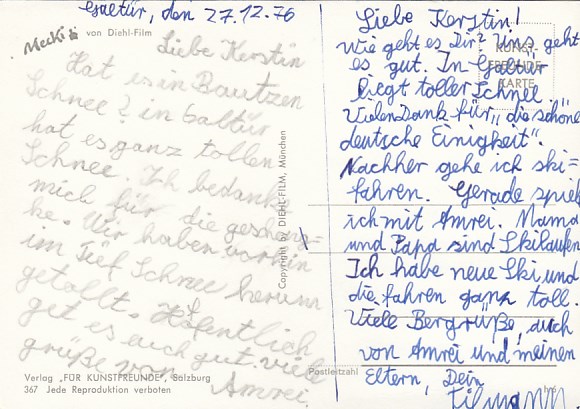 Galtür, den 27.12.76
Mecki von Diehl-Film
Liebe Kerstin
Hat es in Bautzen
Schnee? in Galtür
hat es ganz tollen
Schnee. Ich bedank
mich für die geschen=
ke. Wir haben vorhin
im Tief Schnee herum
getollt. Hofentlich
get es auch gut. viele
grüße von Amrei.
Verlag „FÜR KUNSTFREUNDE", Salzburg
367 Jede Reproduktion verboten
Copyright by DIEHL-FILM, München
Liebe Kerstin!
Wie geht es Dir? Uns geht
es gut. In Galtür
liegt toller Schnee.
Vielen Dank für „die schöne
deutsche Einigkeit".
Nachher gehe ich ski-
fahren. Gerade spiel
ich mit Amrei. Mama
und Papa sind Skilaufen
Ich habe neue Ski und
die fahren ganz toll.
Viele Bergrüße, auch
von Amrei und meinen
Eltern, Dein
Tilmann
KUNST-
FREUNDE
KARTE
Postleitzahl